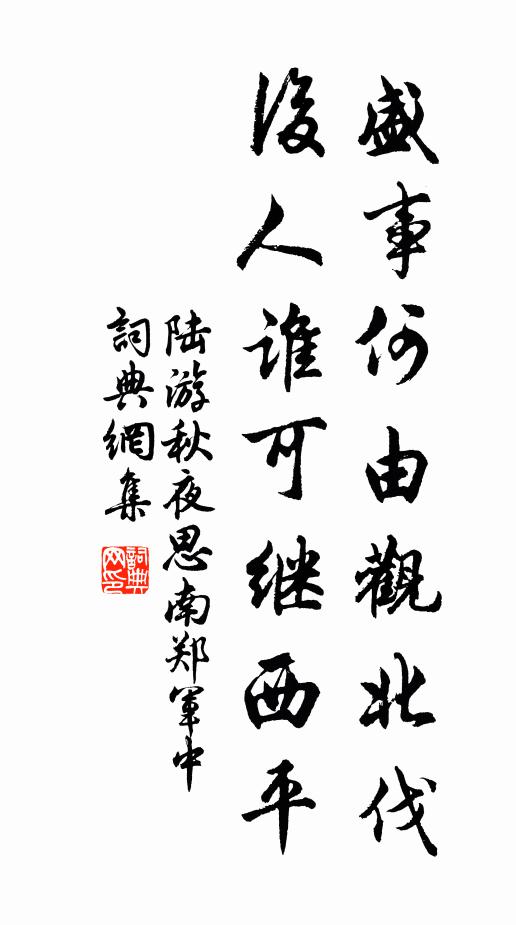 盛事何由觀北伐
後人誰可继西平
陆游秋夜思南郑軍中
詞典網集
詞典网印